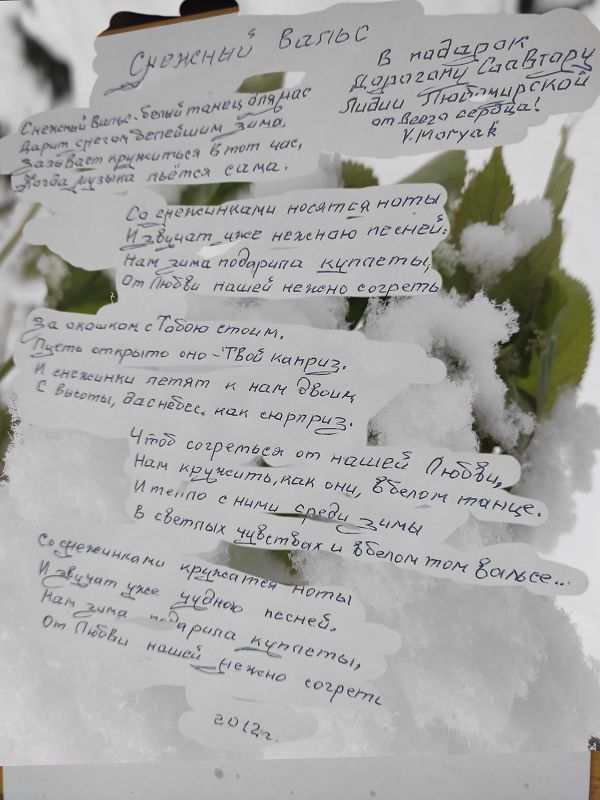 Снежный Вальс
В подарок
Дорогому Соавтору
Лидии Любомирской
от всего сердца!
V. Moryak
Снежный Вальс - белый танец для нас
Дарит снегом белейшим зима.
Зазывает кружиться в тот час,
Когда музыка льётся сама.
Со снежинками носятся ноты
И звучат уже нежною песней.
Нам зима подарила куплеты,
От Любви нашей нежно согреть
За окошком с Тобою стоим.
Пусть открыто оно - Твой каприз.
И снежинки летят к нам двоим
С высоты, да с небес, как сюрприз.
Чтоб согреться от нашей Любви,
Нам кружить, как они, в белом танце.
И тепло с ними среди зимы
В светлых чувствах и в белом том вальсе...
Со снежинками кружатся ноты
И звучат уже чудною песней.
Нам зима подарила куплеты,
От Любви нашей нежно согреть
2012г.